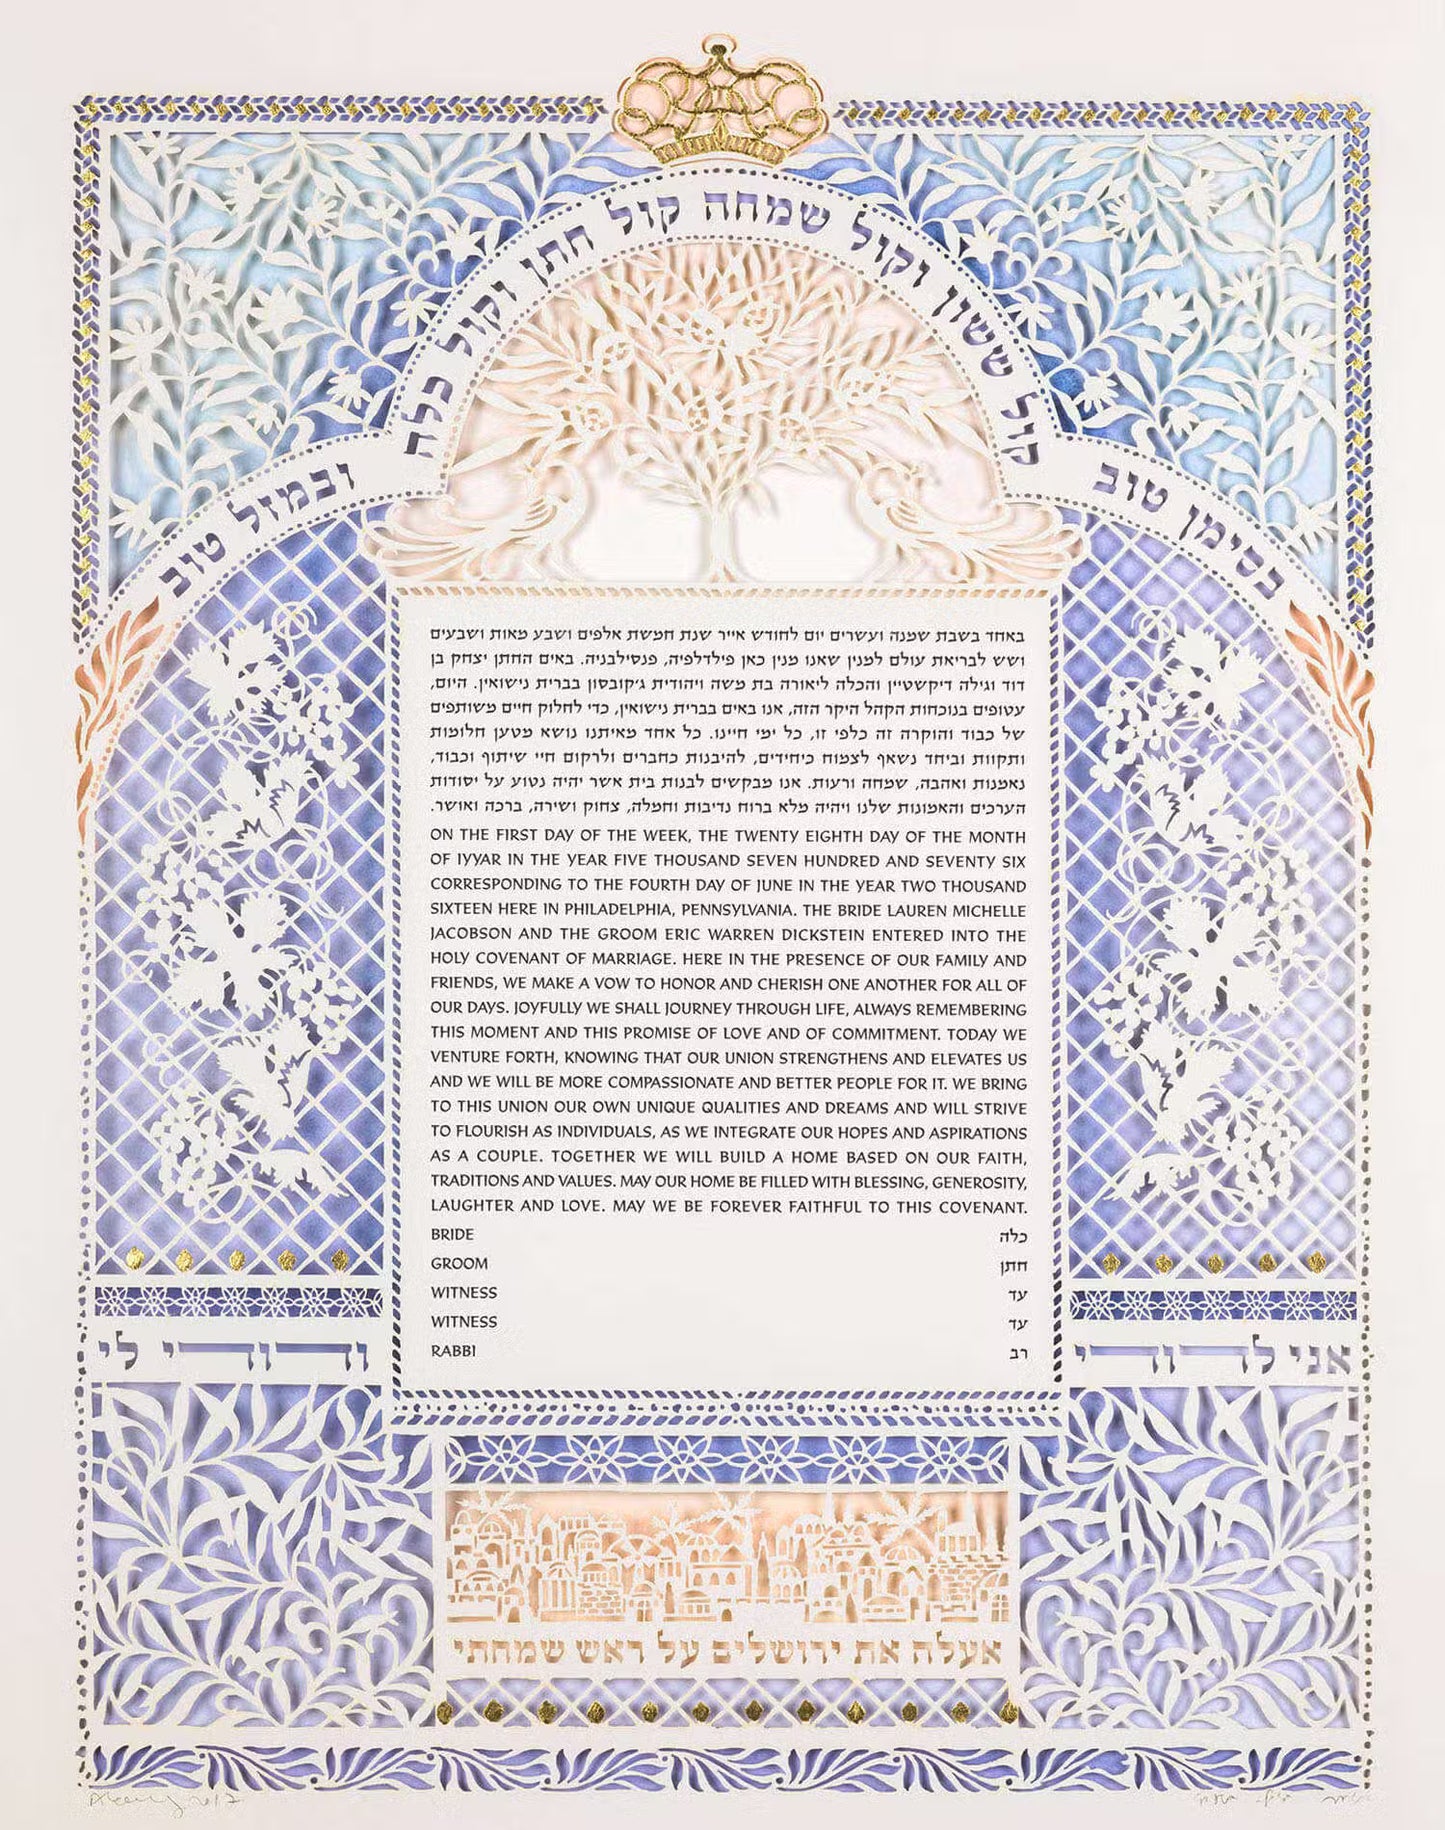 בסימן טוב
קול ששון וקול שמחה קול חתן וקול כלה
ובמזל טוב
באחד בשבת שמנה ועשרים יום לחודש אייר שנת חמשת אלפים ושבע מאות ושבעים
ושש לבריאת עולם למנין שאנו מנין כאן פילדלפיה, פנסילבניה. באים החתן יצחק בן
דוד וגילה דיקשטיין והכלה ליאורה בת משה ויהודית ג׳קובסון בברית נישואין. היום,
עטופים בנוכחות הקהל היקר הזה, אנו באים בברית נישואין, כדי לחלוק חיים משותפים
של כבוד והוקרה זה כלפי זו, כל ימי חיינו. כל אחד מאיתנו נושא מטען חלומות
ותקוות וביחד נשאף לצמוח כיחידים, להיבנות כחברים ולרקום חיי שיתוף וכבוד,
נאמנות ואהבה, שמחה ורעות. אנו מבקשים לבנות בית אשר יהיה נטוע על יסודות
הערכים והאמונות שלנו ויהיה מלא ברוח נדיבות וחמלה, צחוק ושירה, ברכה ואושר.
ON THE FIRST DAY OF THE WEEK, THE TWENTY EIGHTH DAY OF THE MONTH
OF IYYAR IN THE YEAR FIVE THOUSAND SEVEN HUNDRED AND SEVENTY SIX
CORRESPONDING TO THE FOURTH DAY OF JUNE IN THE YEAR TWO THOUSAND
SIXTEEN HERE IN PHILADELPHIA, PENNSYLVANIA. THE BRIDE LAUREN MICHELLE
JACOBSON AND THE GROOM ERIC WARREN DICKSTEIN ENTERED INTO THE
HOLY COVENANT OF MARRIAGE. HERE IN THE PRESENCE OF OUR FAMILY AND
FRIENDS, WE MAKE A VOW TO HONOR AND CHERISH ONE ANOTHER FOR ALL OF
OUR DAYS. JOYFULLY WE SHALL JOURNEY THROUGH LIFE, ALWAYS REMEMBERING
THIS MOMENT AND THIS PROMISE OF LOVE AND OF COMMITMENT. TODAY WE
VENTURE FORTH, KNOWING THAT OUR UNION STRENGTHENS AND ELEVATES US
AND WE WILL BE MORE COMPASSIONATE AND BETTER PEOPLE FOR IT. WE BRING
TO THIS UNION OUR OWN UNIQUE QUALITIES AND DREAMS AND WILL STRIVE
TO FLOURISH AS INDIVIDUALS, AS WE INTEGRATE OUR HOPES AND ASPIRATIONS
AS A COUPLE. TOGETHER WE WILL BUILD A HOME BASED ON OUR FAITH,
TRADITIONS AND VALUES. MAY OUR HOME BE FILLED WITH BLESSING, GENEROSITY,
LAUGHTER AND LOVE. MAY WE BE FOREVER FAITHFUL TO THIS COVENANT.
BRIDE כלה
GROOM חתן
WITNESS עד
WITNESS עד
RABBI רב
אני לדודי ודודי לי
אעלה את ירושלים על ראש שמחתי
2017